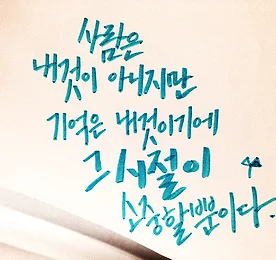 사람은
내것이 아니지만
기억은 내것이기에
그 시절이
소중할뿐이다.